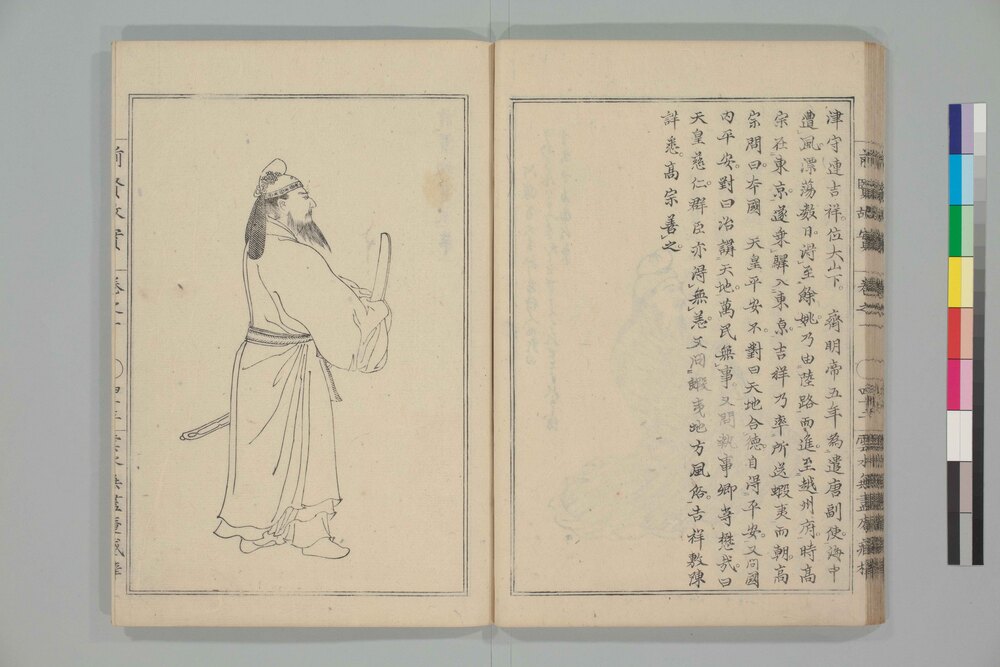 津守連吉祥。位大山下。 齊明帝五年為遣唐副使。海中
遭風漂蕩數日。得至餘姚。乃由陸路而進。至越州府。時高
宗在東京。遂乘驛入東京。吉祥乃率所送蝦夷而朝。高
宗問曰。本國 天皇平安不。對曰。天地合德。自得平安。又問國
內平安。對曰。治謂天地。萬民無事。又問執事卿等懋哉。曰
天皇慈仁。群臣亦得無恙。又问蝦夷地方風俗。吉祥敷陳
詳悉。高宗善之。
前賢故實 卷之一
前賢故實 卷之一